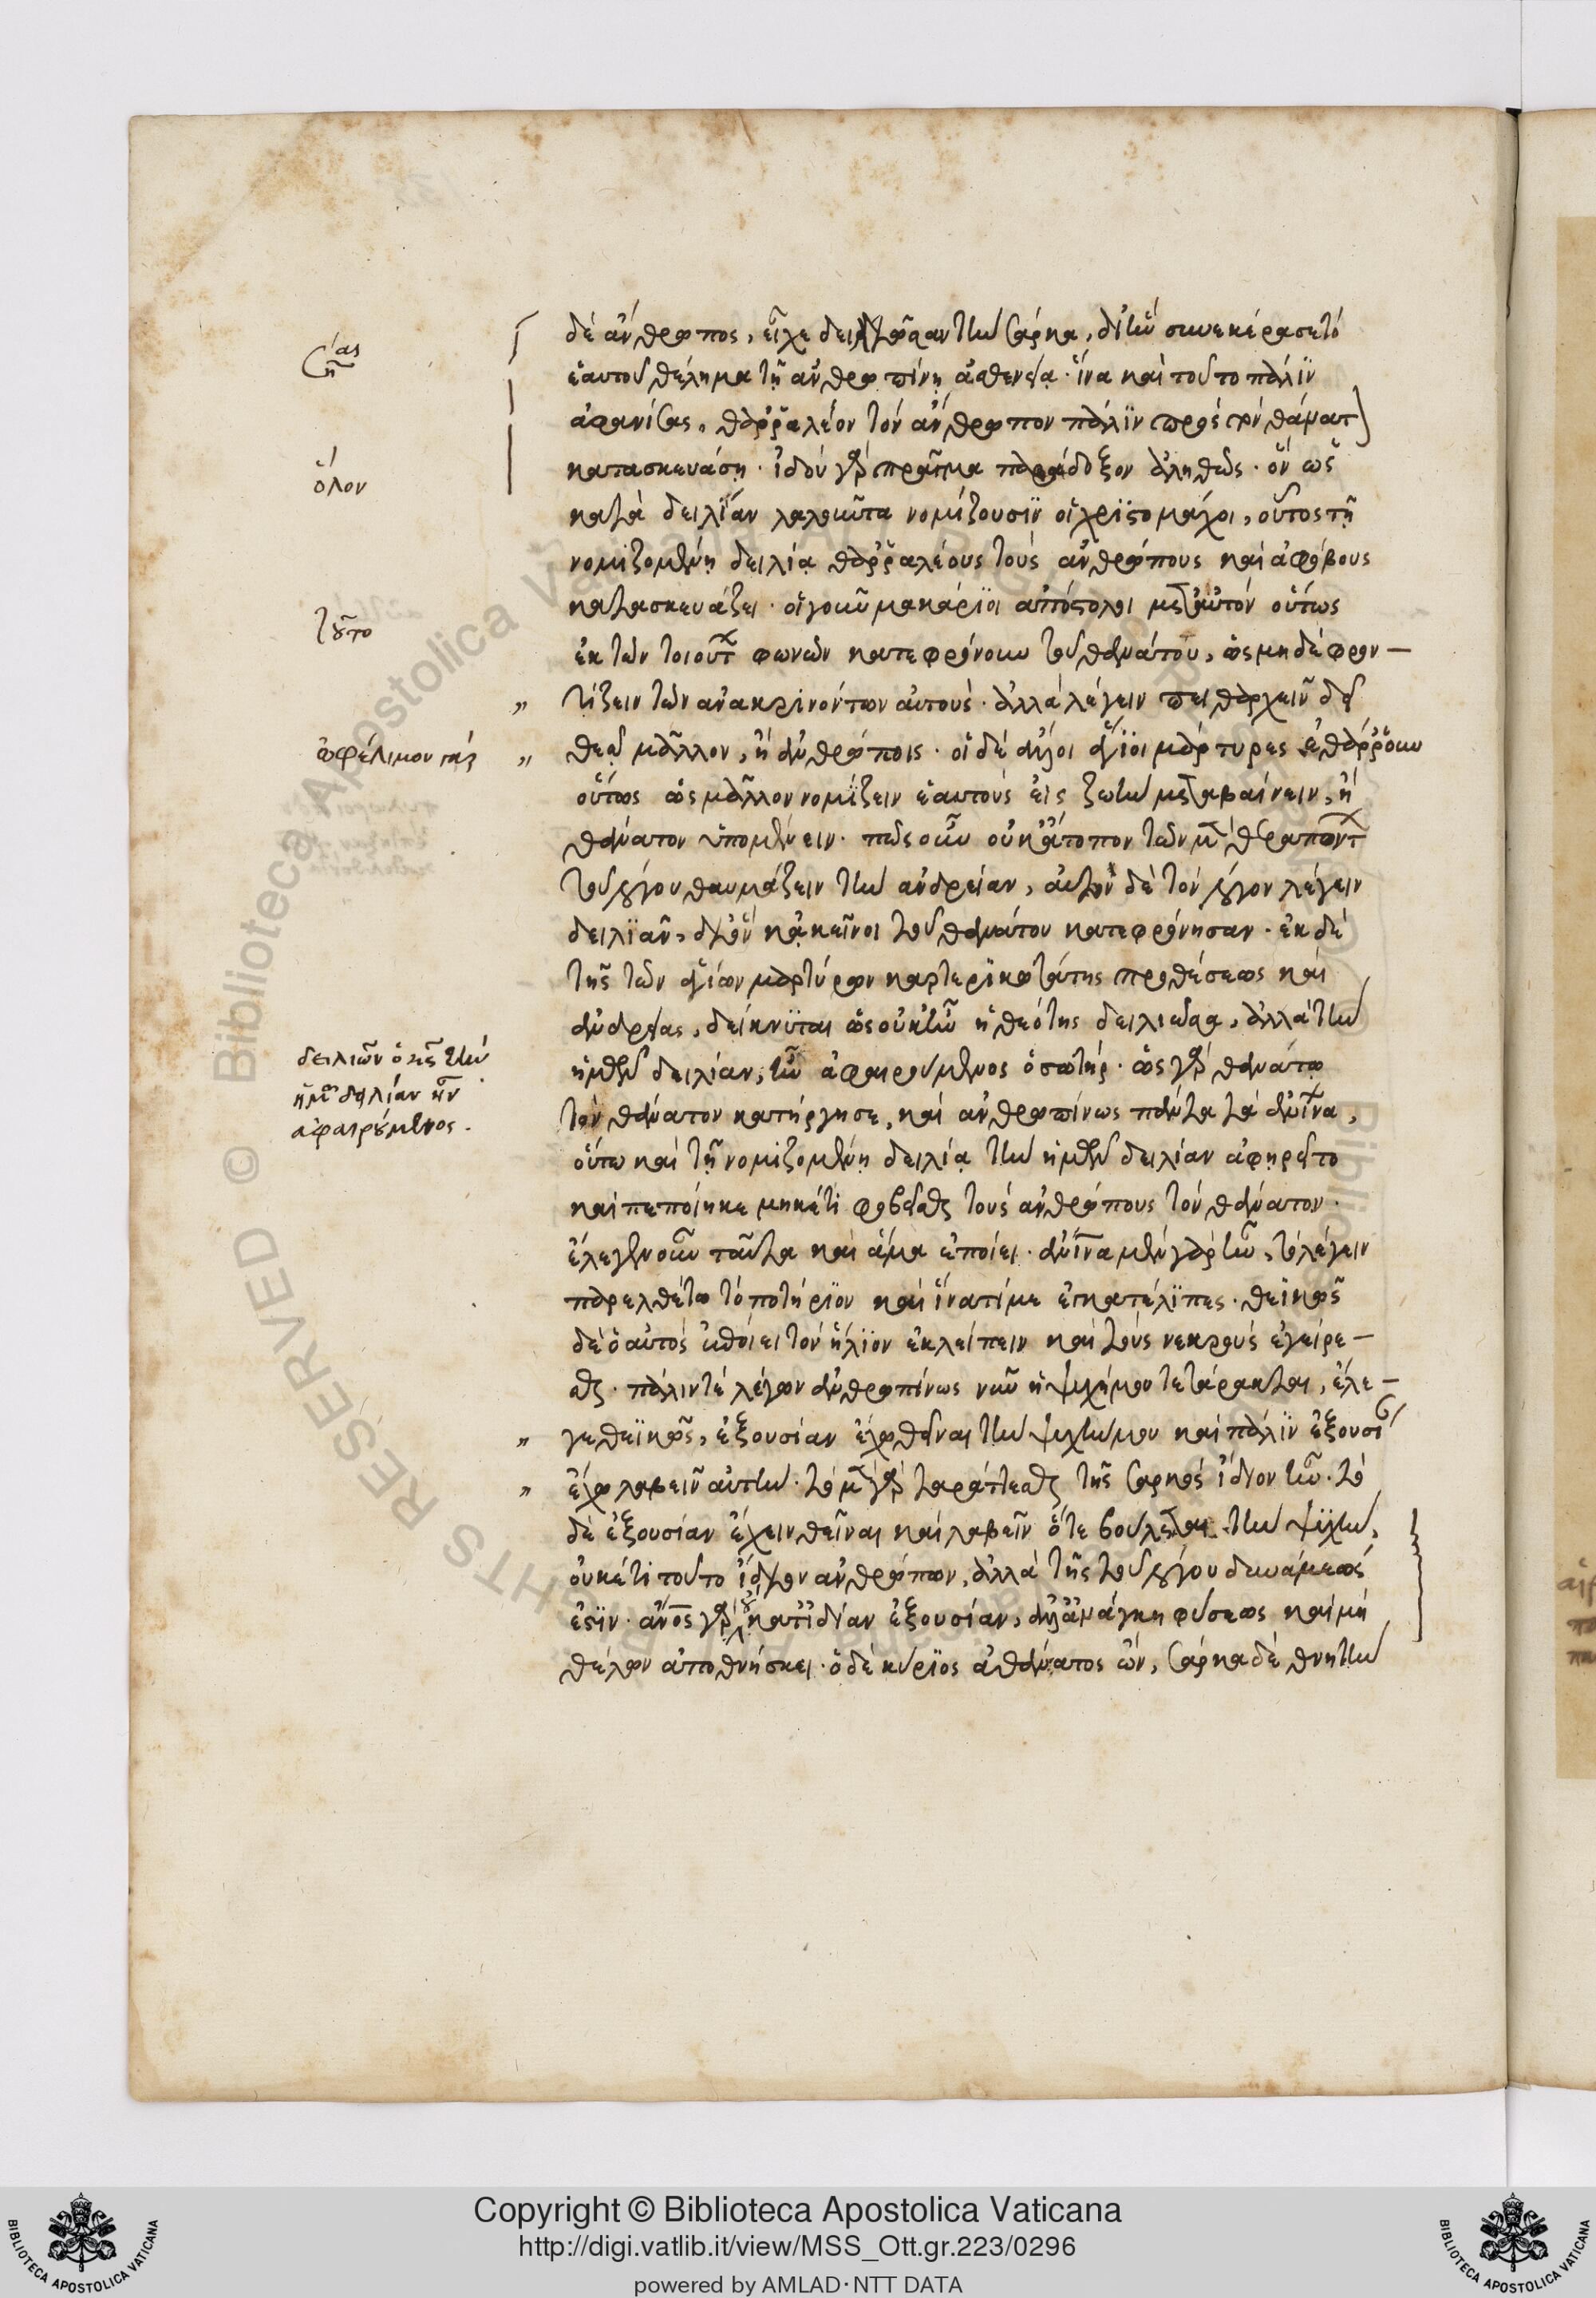 δὲ ἄνθρωπος, εἶχε δειλιῶσαν τὴν σάρκα, δι' ἣν συνεκέρασε τὸ
ἑαυτοῦ θέλημα τῇ ἀνθρωπίνῃ ἀσθενείᾳ· ἵνα καὶ τοῦτο πάλιν
ἀφανίσας, θαρραλέον τὸν ἄνθρωπον πάλιν πρὸς τὸν θάνατον
κατασκευάσῃ· ἰδοὺ γὰρ πρᾶγμα παράδοξον ἀληθῶς· ὃν ὡς
κατὰ δειλίαν λαλοῦντα νομίζουσιν οἱ χριστομάχοι, οὗτος τῇ
νομιζομένῃ δειλίᾳ θαρραλέους τοὺς ἀνθρώπους καὶ ἀφόβους
κατασκευάζει· οἱ γοῦν μακάριοι ἀπόστολοι μετ' αὐτὸν οὕτως
ἐκ τῶν τοιούτων φωνῶν κατεφρόνουν τοῦ θανάτου, ὡς μηδὲ φρον–
τίζειν τῶν ἀνακρινόντων αὐτούς· ἀλλὰ λέγειν πειθαρχεῖν δεῖ
θεῷ μᾶλλον, ἢ ἀνθρώποις· οἱ δὲ ἄλλοι ἅγιοι μάρτυρες ἐθάρρουν
οὕτως ὡς μᾶλλον νομίζειν ἑαυτοὺς εἰς ζωὴν μεταβαίνειν, ἢ
θάνατον ὑπομένειν· πῶς οὖν οὐκ ἄτοπον τῶν μὲν θεραπόντων
τοῦ λόγου θαυμάζειν τὴν ἀνδρείαν, αὐτὸν δὲ τὸν λόγον λέγειν
δειλιᾶν, δι' ὃν κἀκεῖνοι τοῦ θανάτου κατεφρόνησαν· ἐκ δὲ
τῆς τῶν ἁγίων μαρτύρων καρτερικωτάτης προθέσεως καὶ
ἀνδρείας, δείκνυται ὡς οὐκ ἦν ἡ θεότης δειλιῶσα, ἀλλὰ τὴν
ἡμῶν δειλίαν, ἦν ἀφαιρούμενος ὁ σωτήρ· ὡς γὰρ θανάτῳ
τὸν θάνατον κατήργησε, καὶ ἀνθρωπίνως πάντα τὰ ἀνθρώπινα,
οὕτω καὶ τῇ νομιζομένῃ δειλίᾳ τὴν ἡμῶν δειλίαν ἀφῃρεῖτο
καὶ πεποίηκε μηκέτι φοβεῖσθαι τοὺς ἀνθρώπους τὸν θάνατον·
ἔλεγεν οὖν ταῦτα καὶ ἅμα ἐποίει· ἀνθρώπινα μὲν γὰρ ἦν, τὸ λέγειν
παρελθέτω τὸ ποτήριον καὶ ἵνα τί με ἐγκατέλιπες· θεϊκῶς
δὲ ὁ αὐτὸς ἐποίει τὸν ἥλιον ἐκλείπειν καὶ τοὺς νεκροὺς ἐγείρε–
σθαι· πάλιν τὲ λέγων ἀνθρωπίνως νῦν ἡ ψυχή μου τετάρακται, ἔλε–
γε θεϊκῶς, ἐξουσίαν ἔχω θεῖναι τὴν ψυχήν μου καὶ πάλιν ἐξουσίαν
ἔχω λαβεῖν αὐτήν· τὸ μὲν γὰρ ταράττεσθαι τῆς σαρκὸς ἴδιον ἦν· τὸ
δὲ ἐξουσίαν ἔχειν θεῖναι καὶ λαβεῖν ὅτε βούλεται τὴν ψυχήν,
οὐκέτι τοῦτο ἴδιον ἀνθρώπων, ἀλλὰ τῆς τοῦ λόγου δυνάμεώς
ἐστιν· ἄνος γὰρ οὐ κατ' ἰδίαν ἐξουσίαν, ἀλλ' ἀνάγκῃ φύσεως καὶ μὴ
θέλων ἀποθνήσκει· ὁ δὲ κύριος ἀθάνατος ὤν, σάρκα δὲ θνητὴν
ὅλον
τοῦτο
ὠφέλιμον
δειλιῶν ὁ κς τὴν
ἡμῶν δειλίαν ἦν
ἀφαιρούμενος.
© Biblioteca Apostolica Vaticana
RESERVED
Copyright © Biblioteca Apostolica Vaticana
http://digi.vatlib.it/view/MSS_Ott.gr.223/0296
powered by AMLAD·NTT DATA
BIBLIOTECA APOSTOLICA VATICANA
BIBLIOTECA APOSTOLICA VATICANA